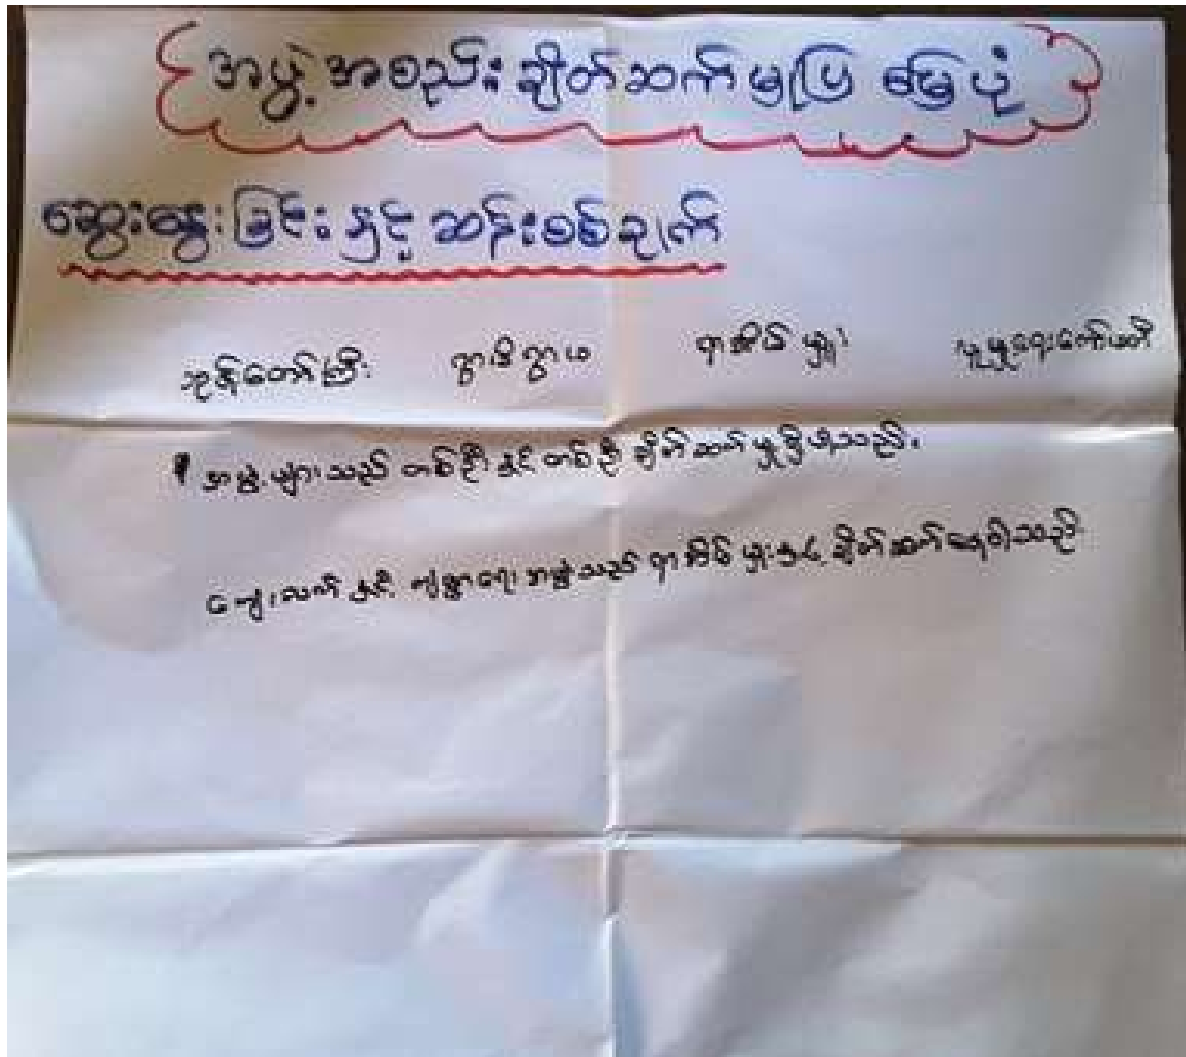 အဖွဲ့အစည်းချိတ်ဆက်မှုပြ မြေပုံ
ဆွေးနွေးခြင်းနှင့် ဆန်းစစ်ချက်
ဘုန်းတော်ကြီး ရွာမိရွာဖ ရာအိမ်မှူး လူမှုရေးကော်မတီ
အဖွဲ့များသည် တစ်ဦးနှင့် တစ်ဦး ချိတ်ဆက်မှုရှိပါသည်။
ကျေးလက် ကျန်းမာရေး အဖွဲ့သည် ရာအိမ်မှူးနှင့် ချိတ်ဆက်နေပါသည်